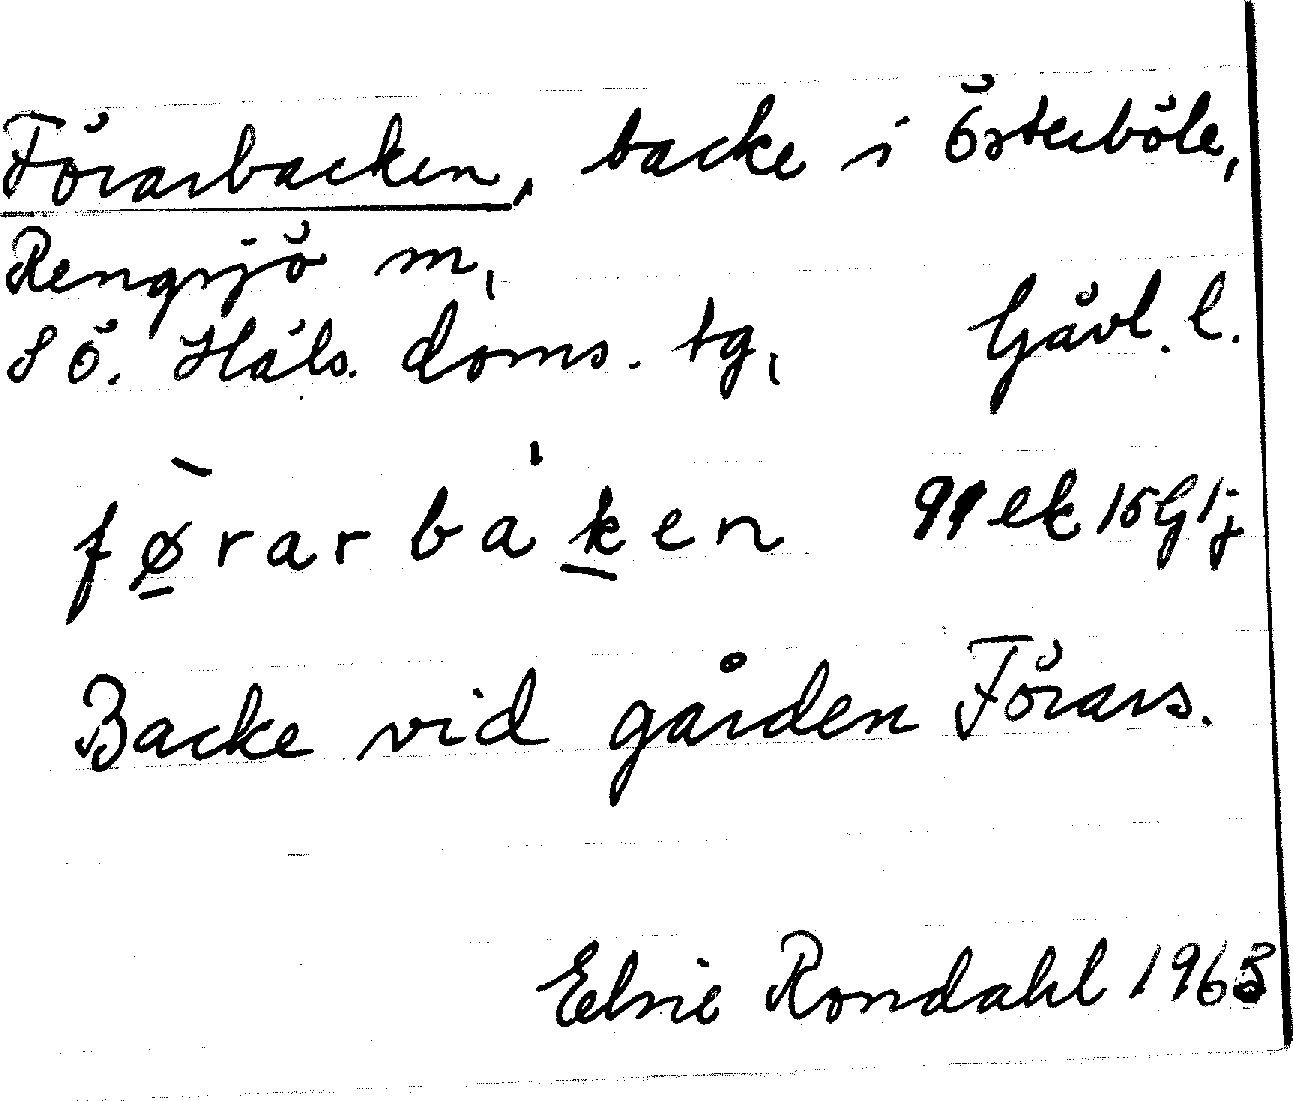 Förarbacken, backe i Österböle,
Rengsjö m,
S Ö. Häls. doms. tg, Gävl. l.
fø̀rarbàken
Backe vid gården Förars.
Elsie Rondahl 1963